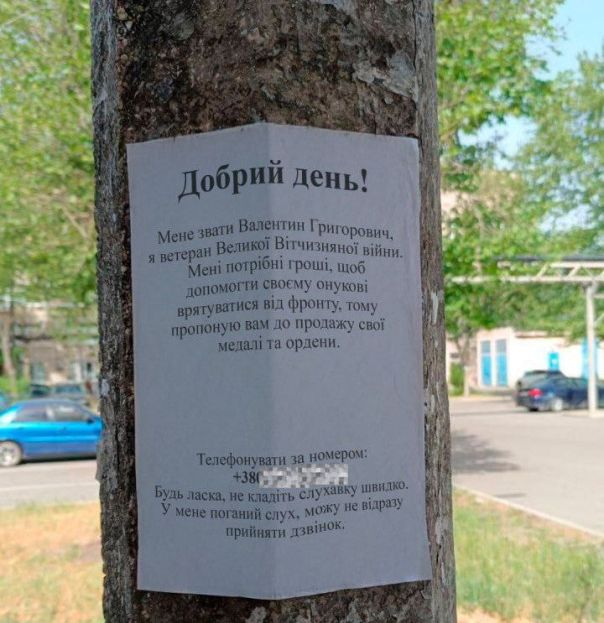 Добрий день!
Мене звати Валентин Григорович,
я ветеран Великої Вітчизняної війни.
Мені потрібні гроші, щоб
допомогти своєму онукові
врятуватися від фронту, тому
пропоную вам до продажу свої
медалі та ордени.
Телефонувати за номером:
+380
Будь ласка, не кладіть слухавку швидко.
У мене поганий слух, можу не відразу
прийняти дзвінок.